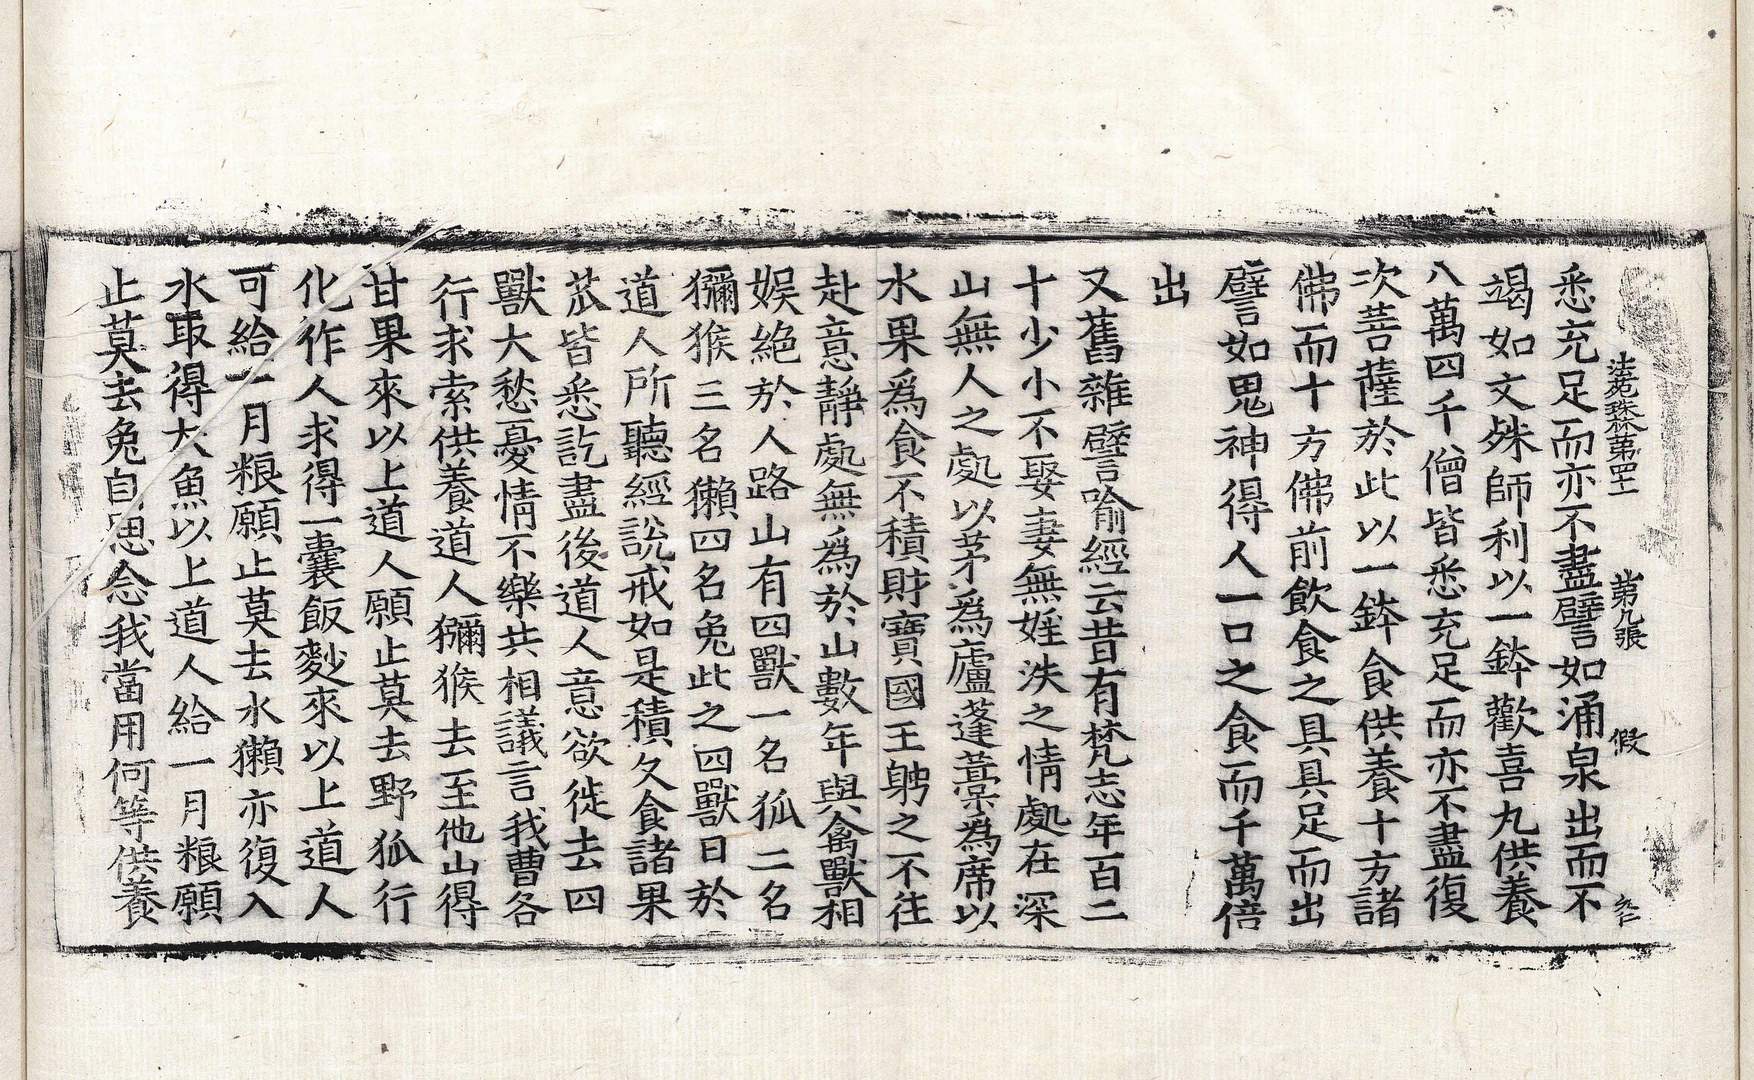 法苑珠林第四十一 第九張 假
悉充足而亦不盡譬如涌泉出而不
竭如文殊師利以一鉢歡喜丸供養
八萬四千僧皆悉充足而亦不盡復
次菩薩於此以一鉢食供養十方諸
佛而十方佛前飲食之具具足而出
譬如鬼神得人一口之食而千萬倍
出
又舊雜譬喻經云昔有梵志年百二
十少小不娶妻無婬泆之情處在深
山無人之處以茅為廬蓬蒿為席以
水果為食不積財寶國王娉之不往
赴意靜處無為於山數年與禽獸相
娛絕於人路山有四獸一名狐二名
獼猴三名獺四名兔此之四獸日於
道人所聽經說戒如是積久食諸果
蓏皆悉訖盡後道人意欲徙去四
獸大愁憂情不樂共相議言我曹各
行求索供養道人獼猴去至他山得
甘果來以上道人願止莫去野狐行
化作人求得一囊飯麨來以上道人
可給一月粮願止莫去水獺亦復入
水取得大魚以上道人給一月粮願
止莫去兔自思念我當用何等供養